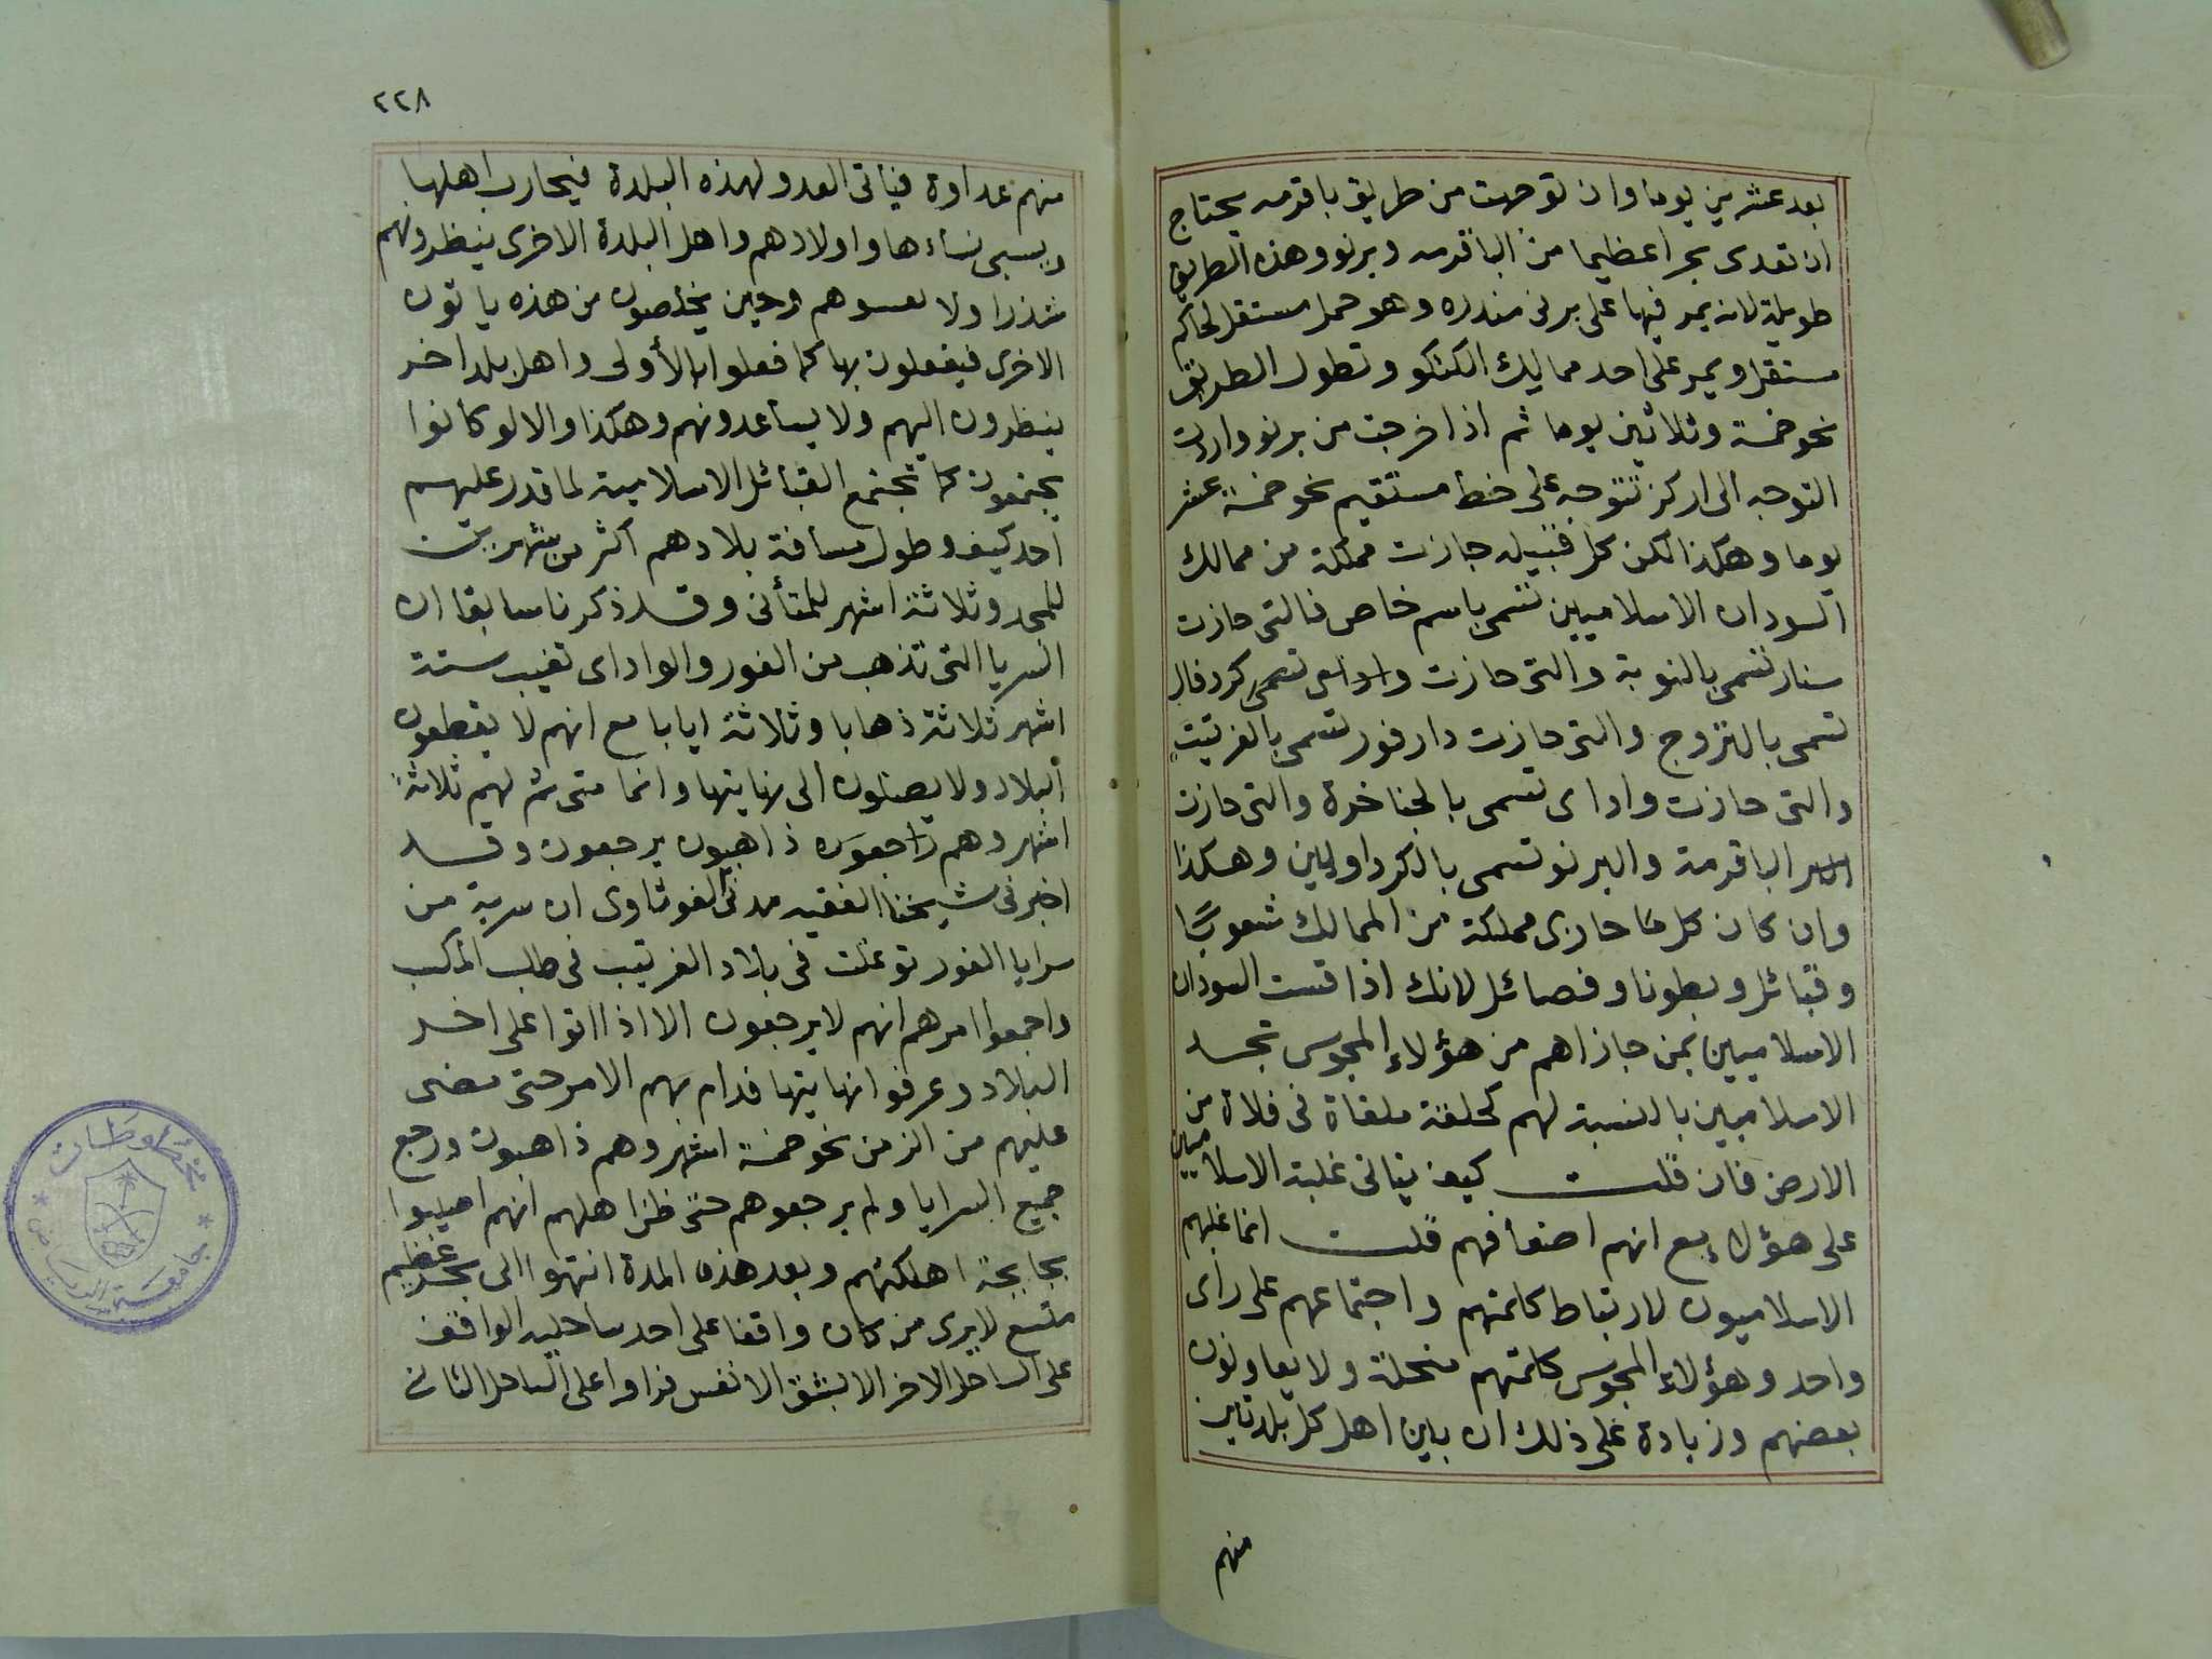 بعد عشرين يوما وان توجهت من طريق باقرمه يحتاج
ان تعدى بحرا عظيما من الباقرمه وبرنو وهذه الطريق
طويلة لانه يمر فيها على برنى مندره وهو محل مستقل لحاكم
مستقل ويمر على احد مماليك الكتكو وتطول الطريق
نحو خمسة وثلاثين يوما ثم اذا خرجت من برنو واردت
التوجه الى اركز تتوجه على خط مستقيم نحو خمسة عشر
يوما وهكذا لكن كل قبيله جازت مملكة من ممالك
السودان الاسلاميين تسمى باسم خاص فالتى حازت
سنار تسمى بالنوبة والتى حازت كردفال
تسمى بالتروج والتى حازت دارفور تسمى بالفرتيت
والتى حازت واداى تسمى بالجناخرة والتى حازت
الباقرمة والبرنو تسمى بالكرداوايين وهكذا
وان كان كل ما حازى مملكة من الممالك شعوبًا
وقبائل وبطونا وفصائل لانك اذا قست السودان
الاسلاميين بمن جازاهم من هؤلاء المجوس تجد
الاسلاميين بالنسبة لهم كحلقة ملقاة فى فلاة من
الارض فان قلت كيف يتاتى غلبة الاسلاميين
على هؤلاء مع انهم اضعافهم قلت انما غلبهم
الاسلاميون لارتباط كلمتهم واجتماعهم على راى
واحد وهؤلاء المجوس كلمتهم منحلة ولا يعاونون
بعضهم وزيادة على ذلك ان بين اهل كل بلدتين
منهم
٢٢٨
منهم عداوة فياتى العدو لهذه البلدة فيحارب اهلها
ويسبى نساءها واولادهم واهل البلدة الاخرى ينظرونهم
شذرا ولا وحين يخلصون من هذه ياتون
الاخرى فيفعلون بها كما فعلوا بالأولى واهل بلد اخر
ينظرون اليهم ولا يساعدونهم وهكذا والا لو كانوا
يجتمعون كما تجتمع القبائل الاسلامية لما قدر عليهم
احد كيف وطول مسافة بلادهم اكثر من شهرين
للمجد وثلاثة اشهر للمتأنى وقد ذكرنا سابقا ان
السرايا التى تذهب من الفور والواداى تغيب ستة
اشهر ثلاثة ذهابا وثلاثة ايابا مع انهم لا يقطعون
البلاد ولا يصلون الى نهايتها وانما متى تم لهم ثلاثة
اشهر وهم ذاهبون يرجعون وقد
اخبرنى شيخنا الفقيه مدنى الفوتاوى ان سرية من
سرايا الفور توغلت فى بلاد الفرتيت فى طلب المكسب
واجمعوا امرهم انهم لا يرجعون الا اذا اتوا على اخر
البلاد وعرفوا نهايتها فدام بهم الامر حتى مضى
عليهم من الزمن نحو خمسة اشهر وهم ذاهبون ورجع
جميع السرايا ولم يرجعوهم حتى ظن اهلهم انهم اصيبوا
بجايحة اهلكتهم وبعد هذه المدة انتهوا الى بحر عظيم
متسع لا يرى من كان واقفا على احد ساحليه الواقف
على الساحل الاخر الا بشق الانفس فراوا على الساحل الثانى
مخطوطات
جامعة الرياض